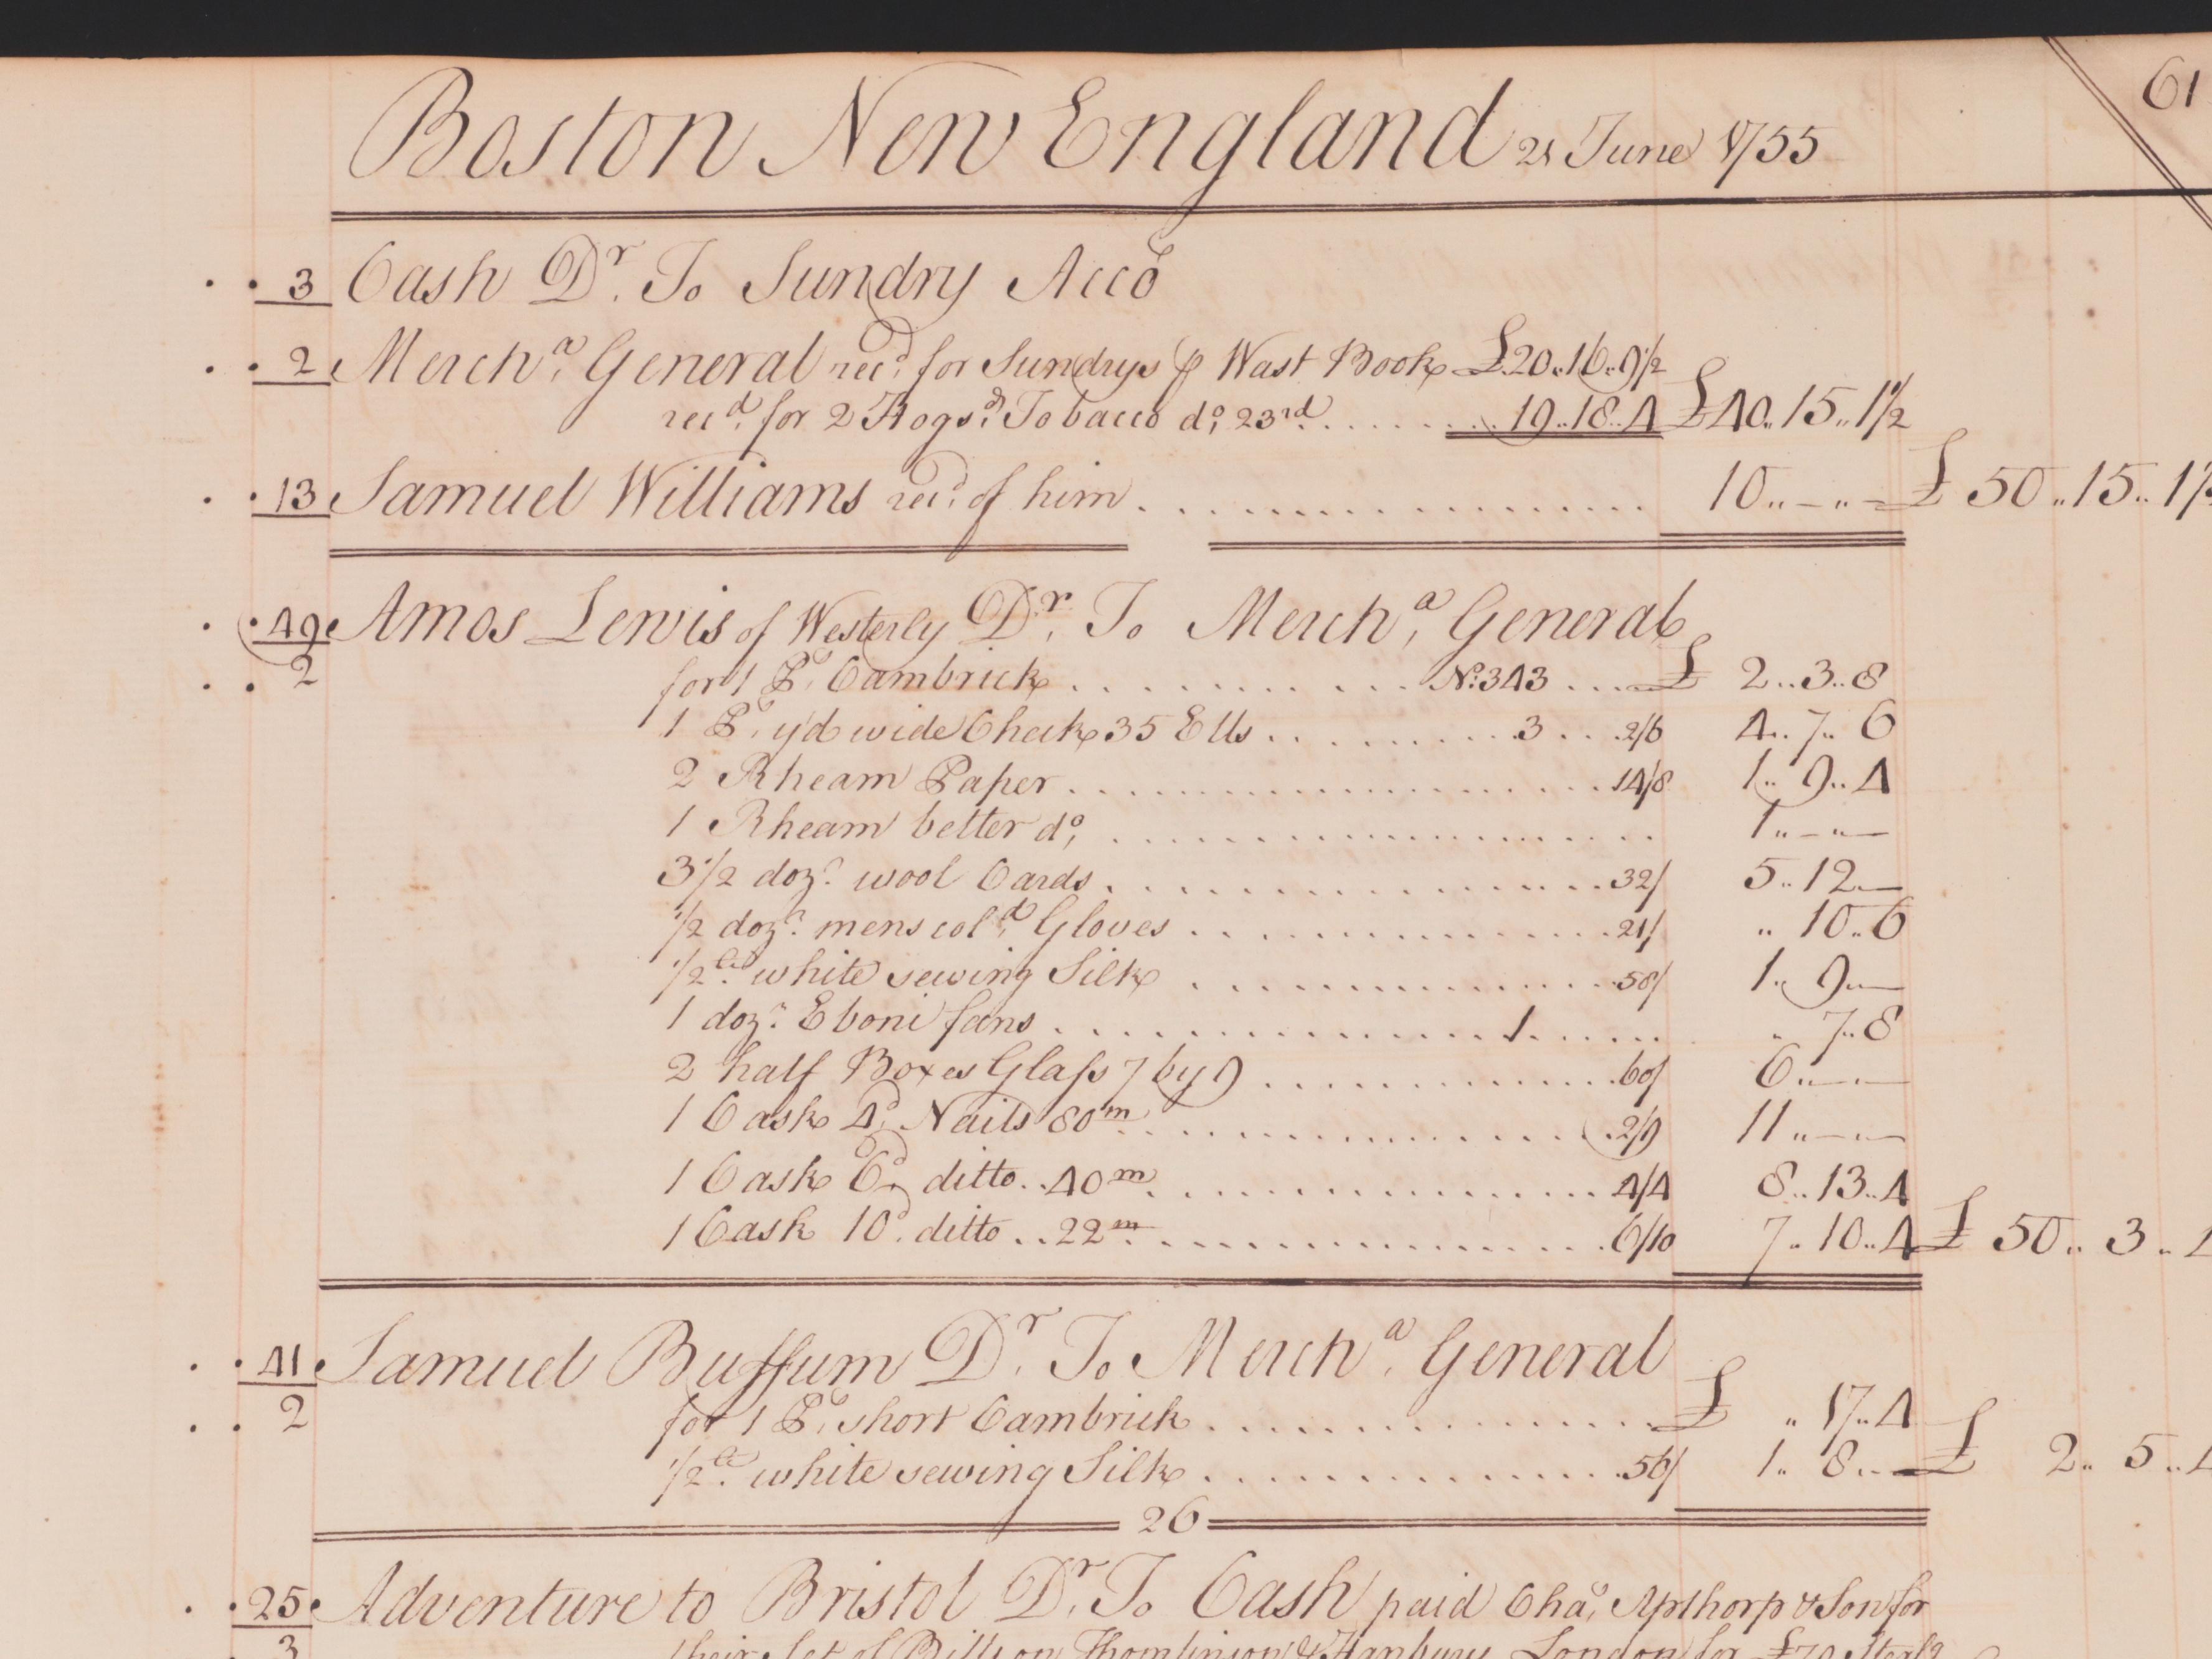 61
Boston New England 21 June 1755
3 Cash Dr. To Sundry Acco
2 Mercha. General recd. for Sundrys ⅌ Wast Book £20..16..9½
recd. for 2 Hogsd. Tobacco do. 23rd. ...... 19..18..4 £40..15..1½
13 Samuel Williams recd. of him ...... 10..-..- £50..15..1½
49 Amos Lewis of Westerly Dr. To Mercha. General
2 for 1 Ps. Cambrick ...... No. 343 .... £ 2..3..8
1 Ps. yd wide Check 35 Ells ...... 3 ... 2/6 4..7..6
2 Rheam Paper ...... 14/8 1..9..4
1 Rheam better do. ...... 1..-..-
3½ doz. wool Cards ...... 32/ 5..12..-
½ doz. mens cold. Gloves ...... 21/ ..10..6
½ lb. white sewing Silk ...... 58/ 1..9..-
1 doz. Eboni fans ...... 1 ..... ..7..8
2 half Boxes Glass 7 by 9 ...... 60/ 6..-..-
1 Cask 4d. Nails 80m ...... 2/9 11..-..-
1 Cask 6d. ditto .. 40m ...... 4/4 8..13..4
1 Cask 10d. ditto .. 22m ...... 6/10 7..10..4 £ 50..3..4
41 Samuel Buffum Dr. To Mercha. General
2 for 1 Ps. short Cambrick ...... £ ..17..4
½ lb. white sewing Silk ...... 56/ 1..8..- £ 2..5..4
26
25 Adventure to Bristol Dr. To Cash paid Chas. Apthorp & Son for
3 their Set of Bills on Thomlinson & Hanbury London for £70 Sterlg